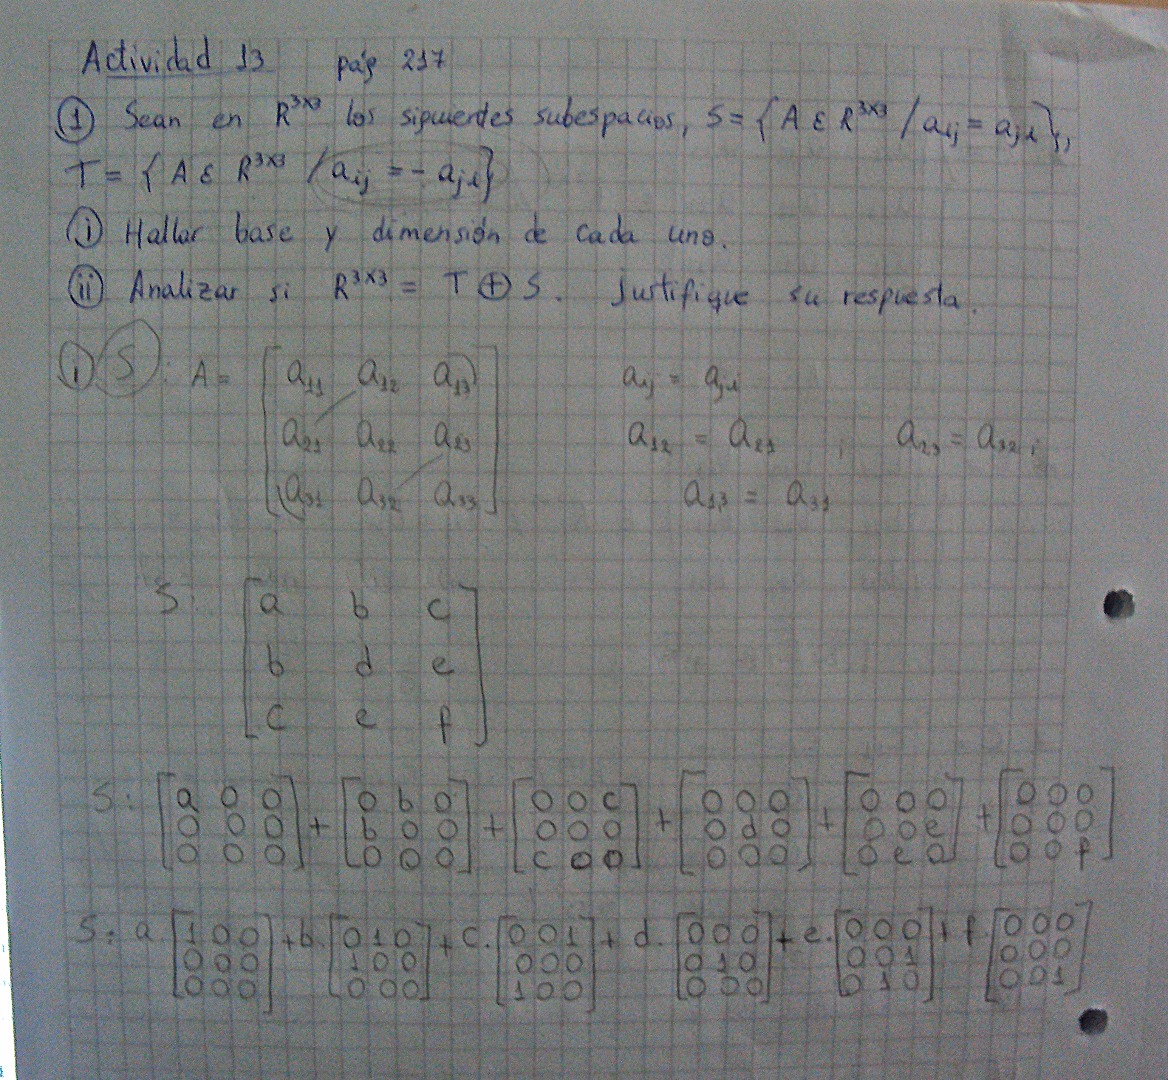 Actividad 13 pág 217
① Sean en R³ˣ³ los siguientes subespacios, S = { A ε R³ˣ³ / aᵢⱼ = aⱼᵢ };,
T = { A ε R³ˣ³ / aᵢⱼ = - aⱼᵢ }
ⓘ Hallar base y dimensión de cada uno.
ⓘⓘ Analizar si R³ˣ³ = T ⊕ S. Justifique su respuesta.
ⓘ S : A = [ a₁₁ a₁₂ a₁₃ aᵢⱼ = aⱼᵢ
a₂₁ a₂₂ a₂₃ a₁₂ = a₂₁ ; a₂₃ = a₃₂ ;
a₃₁ a₃₂ a₃₃ ] a₁₃ = a₃₁
S: [ a b c
b d e
c e f ]
S: [ a 0 0 ] + [ 0 b 0 ] + [ 0 0 c ] + [ 0 0 0 ] + [ 0 0 0 ] + [ 0 0 0 ]
[ 0 0 0 ] [ b 0 0 ] [ 0 0 0 ] [ 0 d 0 ] [ 0 0 e ] [ 0 0 0 ]
[ 0 0 0 ] [ 0 0 0 ] [ c 0 0 ] [ 0 0 0 ] [ 0 e 0 ] [ 0 0 f ]
S: a. [ 1 0 0 ] + b. [ 0 1 0 ] + c. [ 0 0 1 ] + d. [ 0 0 0 ] + e. [ 0 0 0 ] + f. [ 0 0 0 ]
[ 0 0 0 ] [ 1 0 0 ] [ 0 0 0 ] [ 0 1 0 ] [ 0 0 1 ] [ 0 0 0 ]
[ 0 0 0 ] [ 0 0 0 ] [ 1 0 0 ] [ 0 0 0 ] [ 0 1 0 ] [ 0 0 1 ]